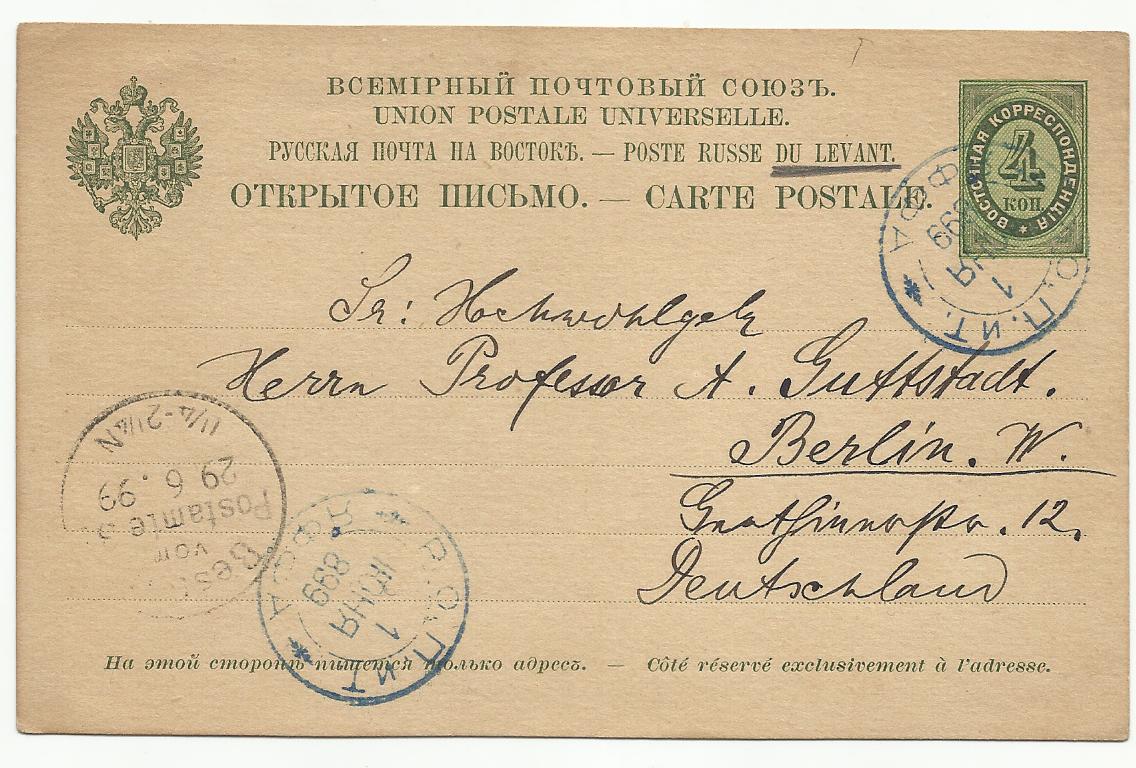 ВСЕМІРНЫЙ ПОЧТОВЫЙ СОЮЗЪ.
UNION POSTALE UNIVERSELLE.
РУССКАЯ ПОЧТА НА ВОСТОКѢ. — POSTE RUSSE DU LEVANT.
ОТКРЫТОЕ ПИСЬМО. — CARTE POSTALE.
ВОСТОЧНАЯ КОРРЕСПОНДЕНЦІЯ
4
КОП
Р.О.П.иТ. ЯФФА
1
ІЮНЯ
899
Sr: Hochwohlgeb
Herrn Professor A. Guttstadt.
Berlin. W.
12.
Deutschland
11¼-2¼N
29 6.99
Postamte
vom
Best.
Р.О.П.иТ. ЯФФА
1
ІЮНЯ
899
На этой сторонѣ пишется только адресъ. — Côté réservé exclusivement à l'adresse.